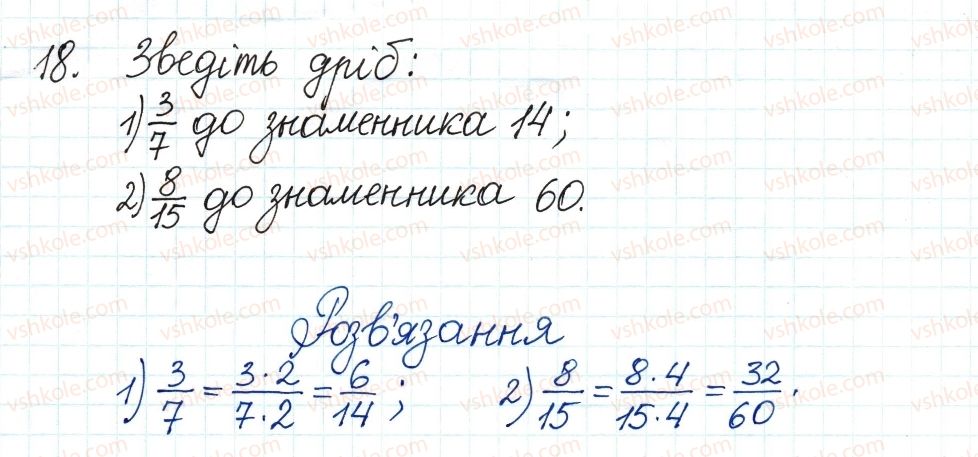 18. Зведіть дріб:
1) 3/7 до знаменника 14;
2) 8/15 до знаменника 60.
Розв'язання
1) 3/7 = 3·2/7·2 = 6/14; 2) 8/15 = 8·4/15·4 = 32/60.
vshkole.com